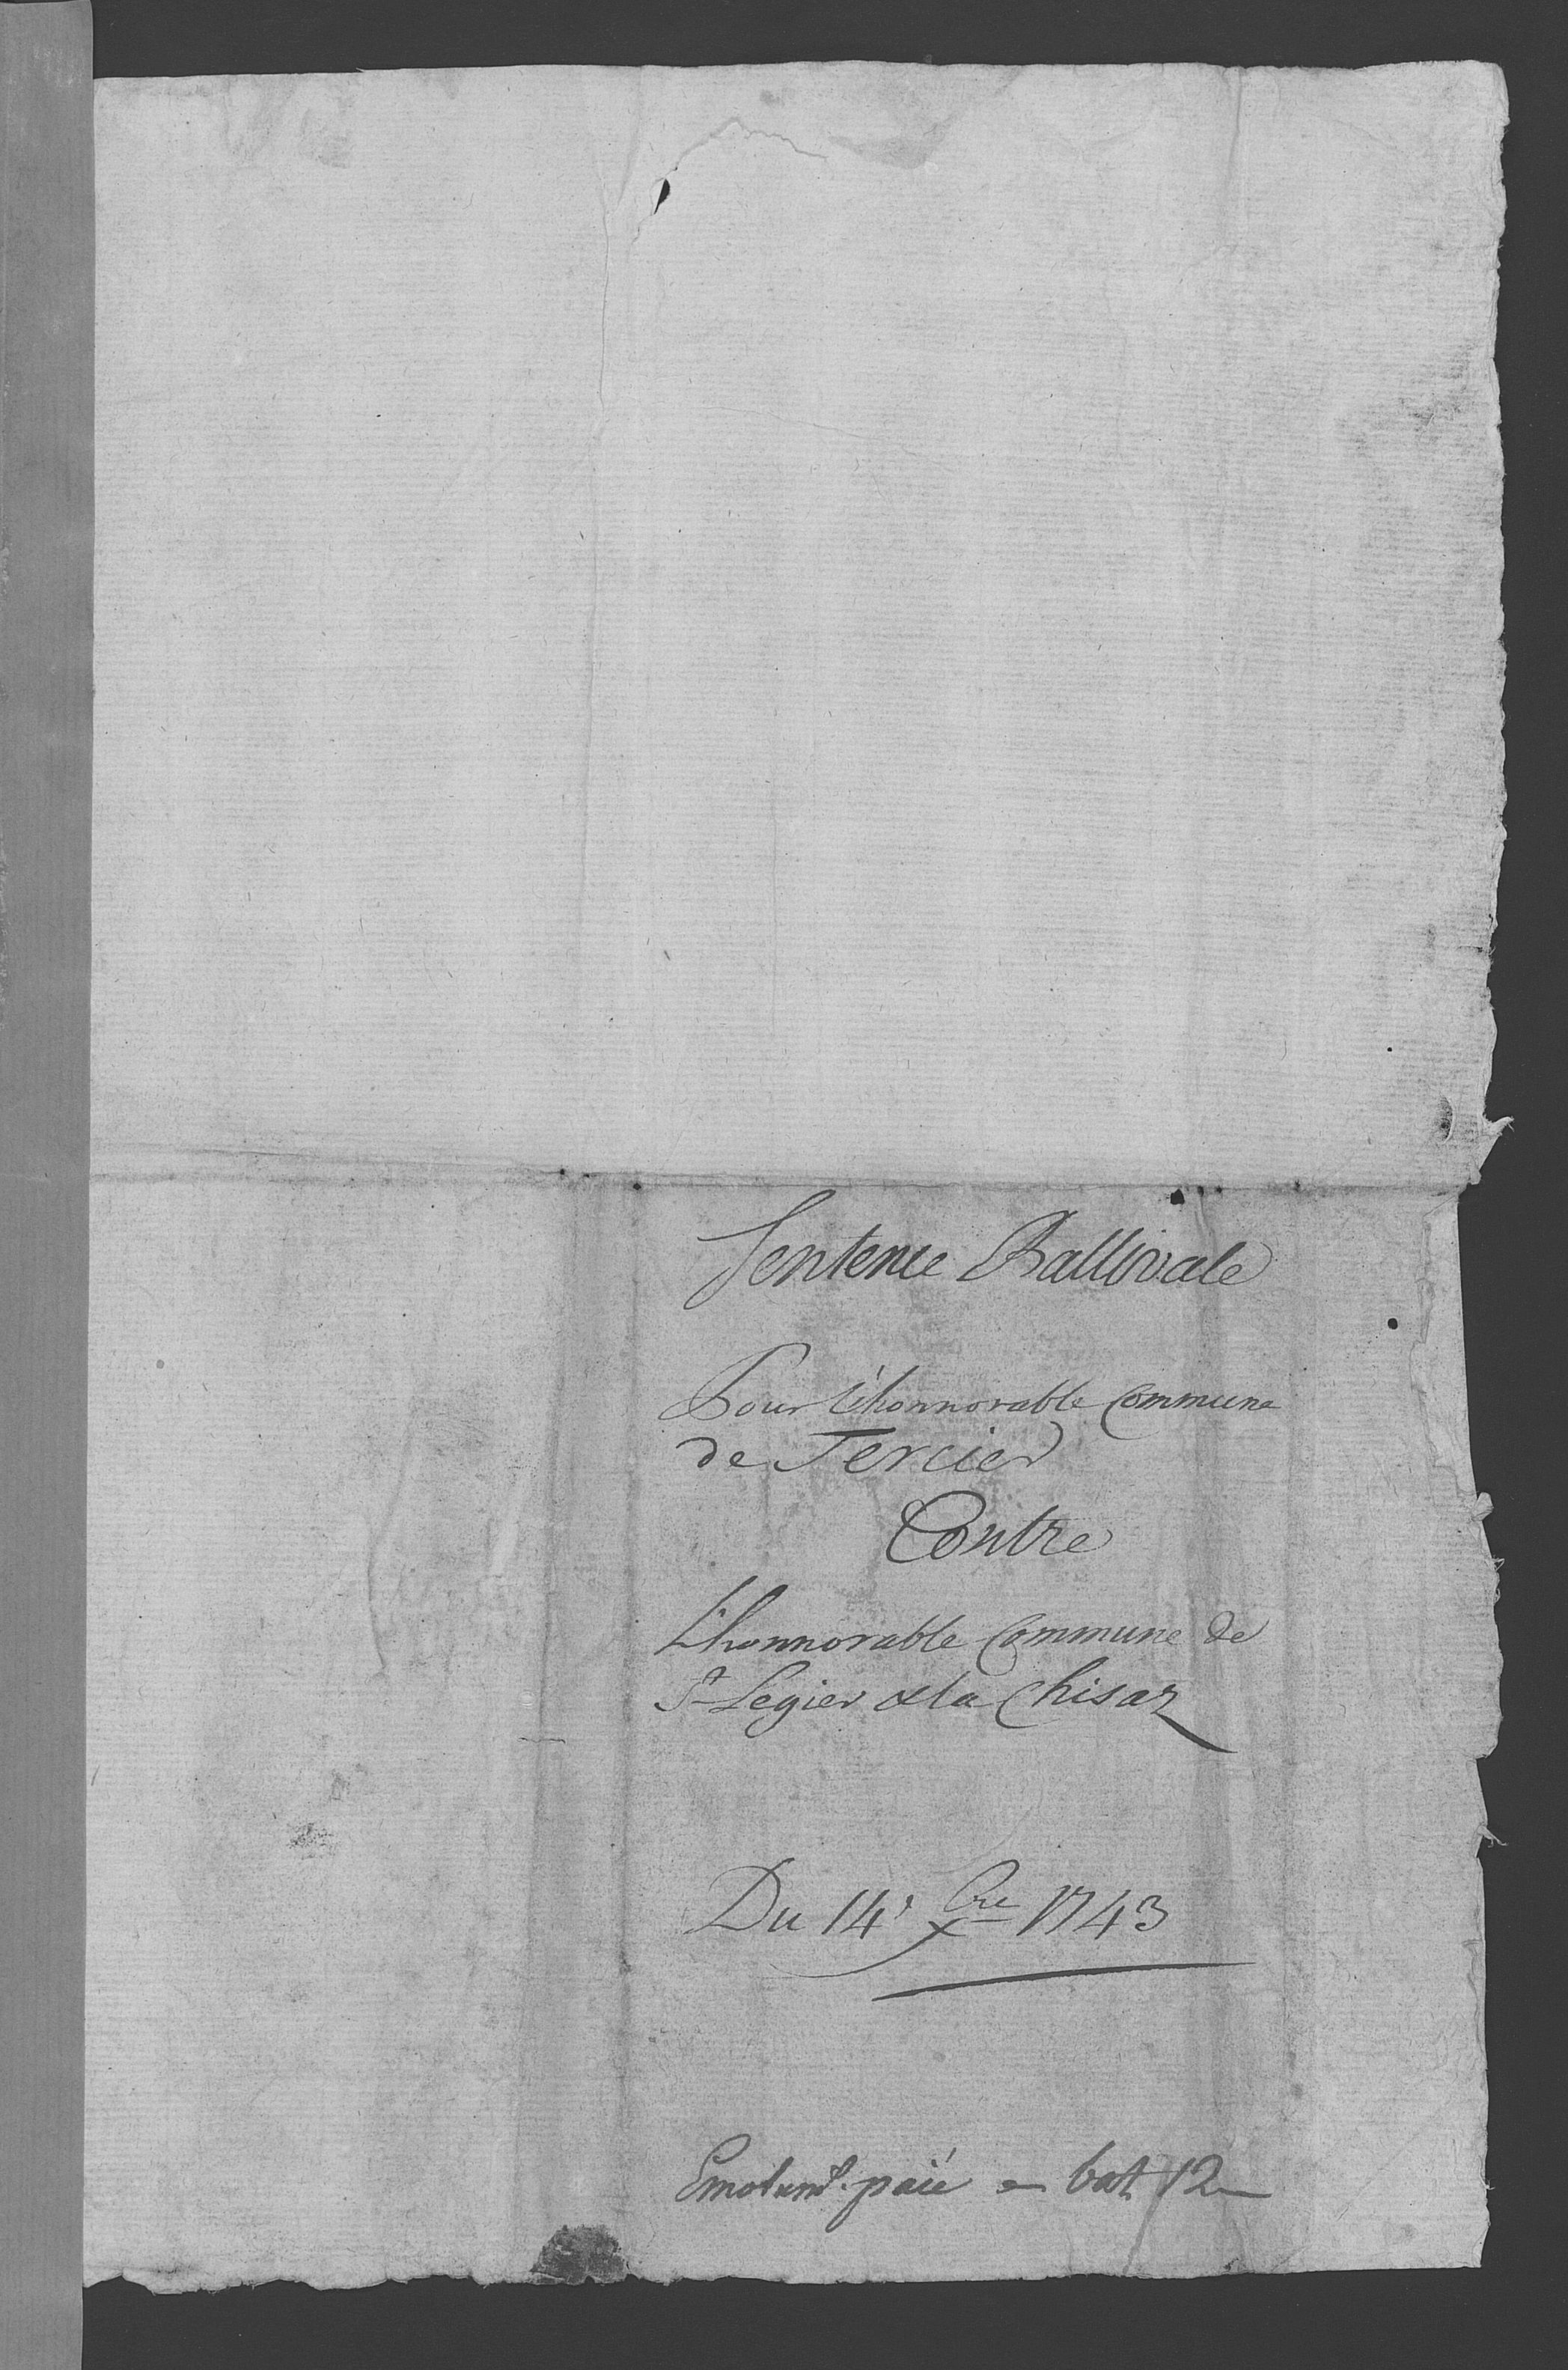 Sentence Ballivale
Pour l'honnorable Commune
de Tercier
Contre
L'honnorable Commune de
St Legier & la Chisaz
Du 14e Xbre 1743
Emolumt. paié = bat 12